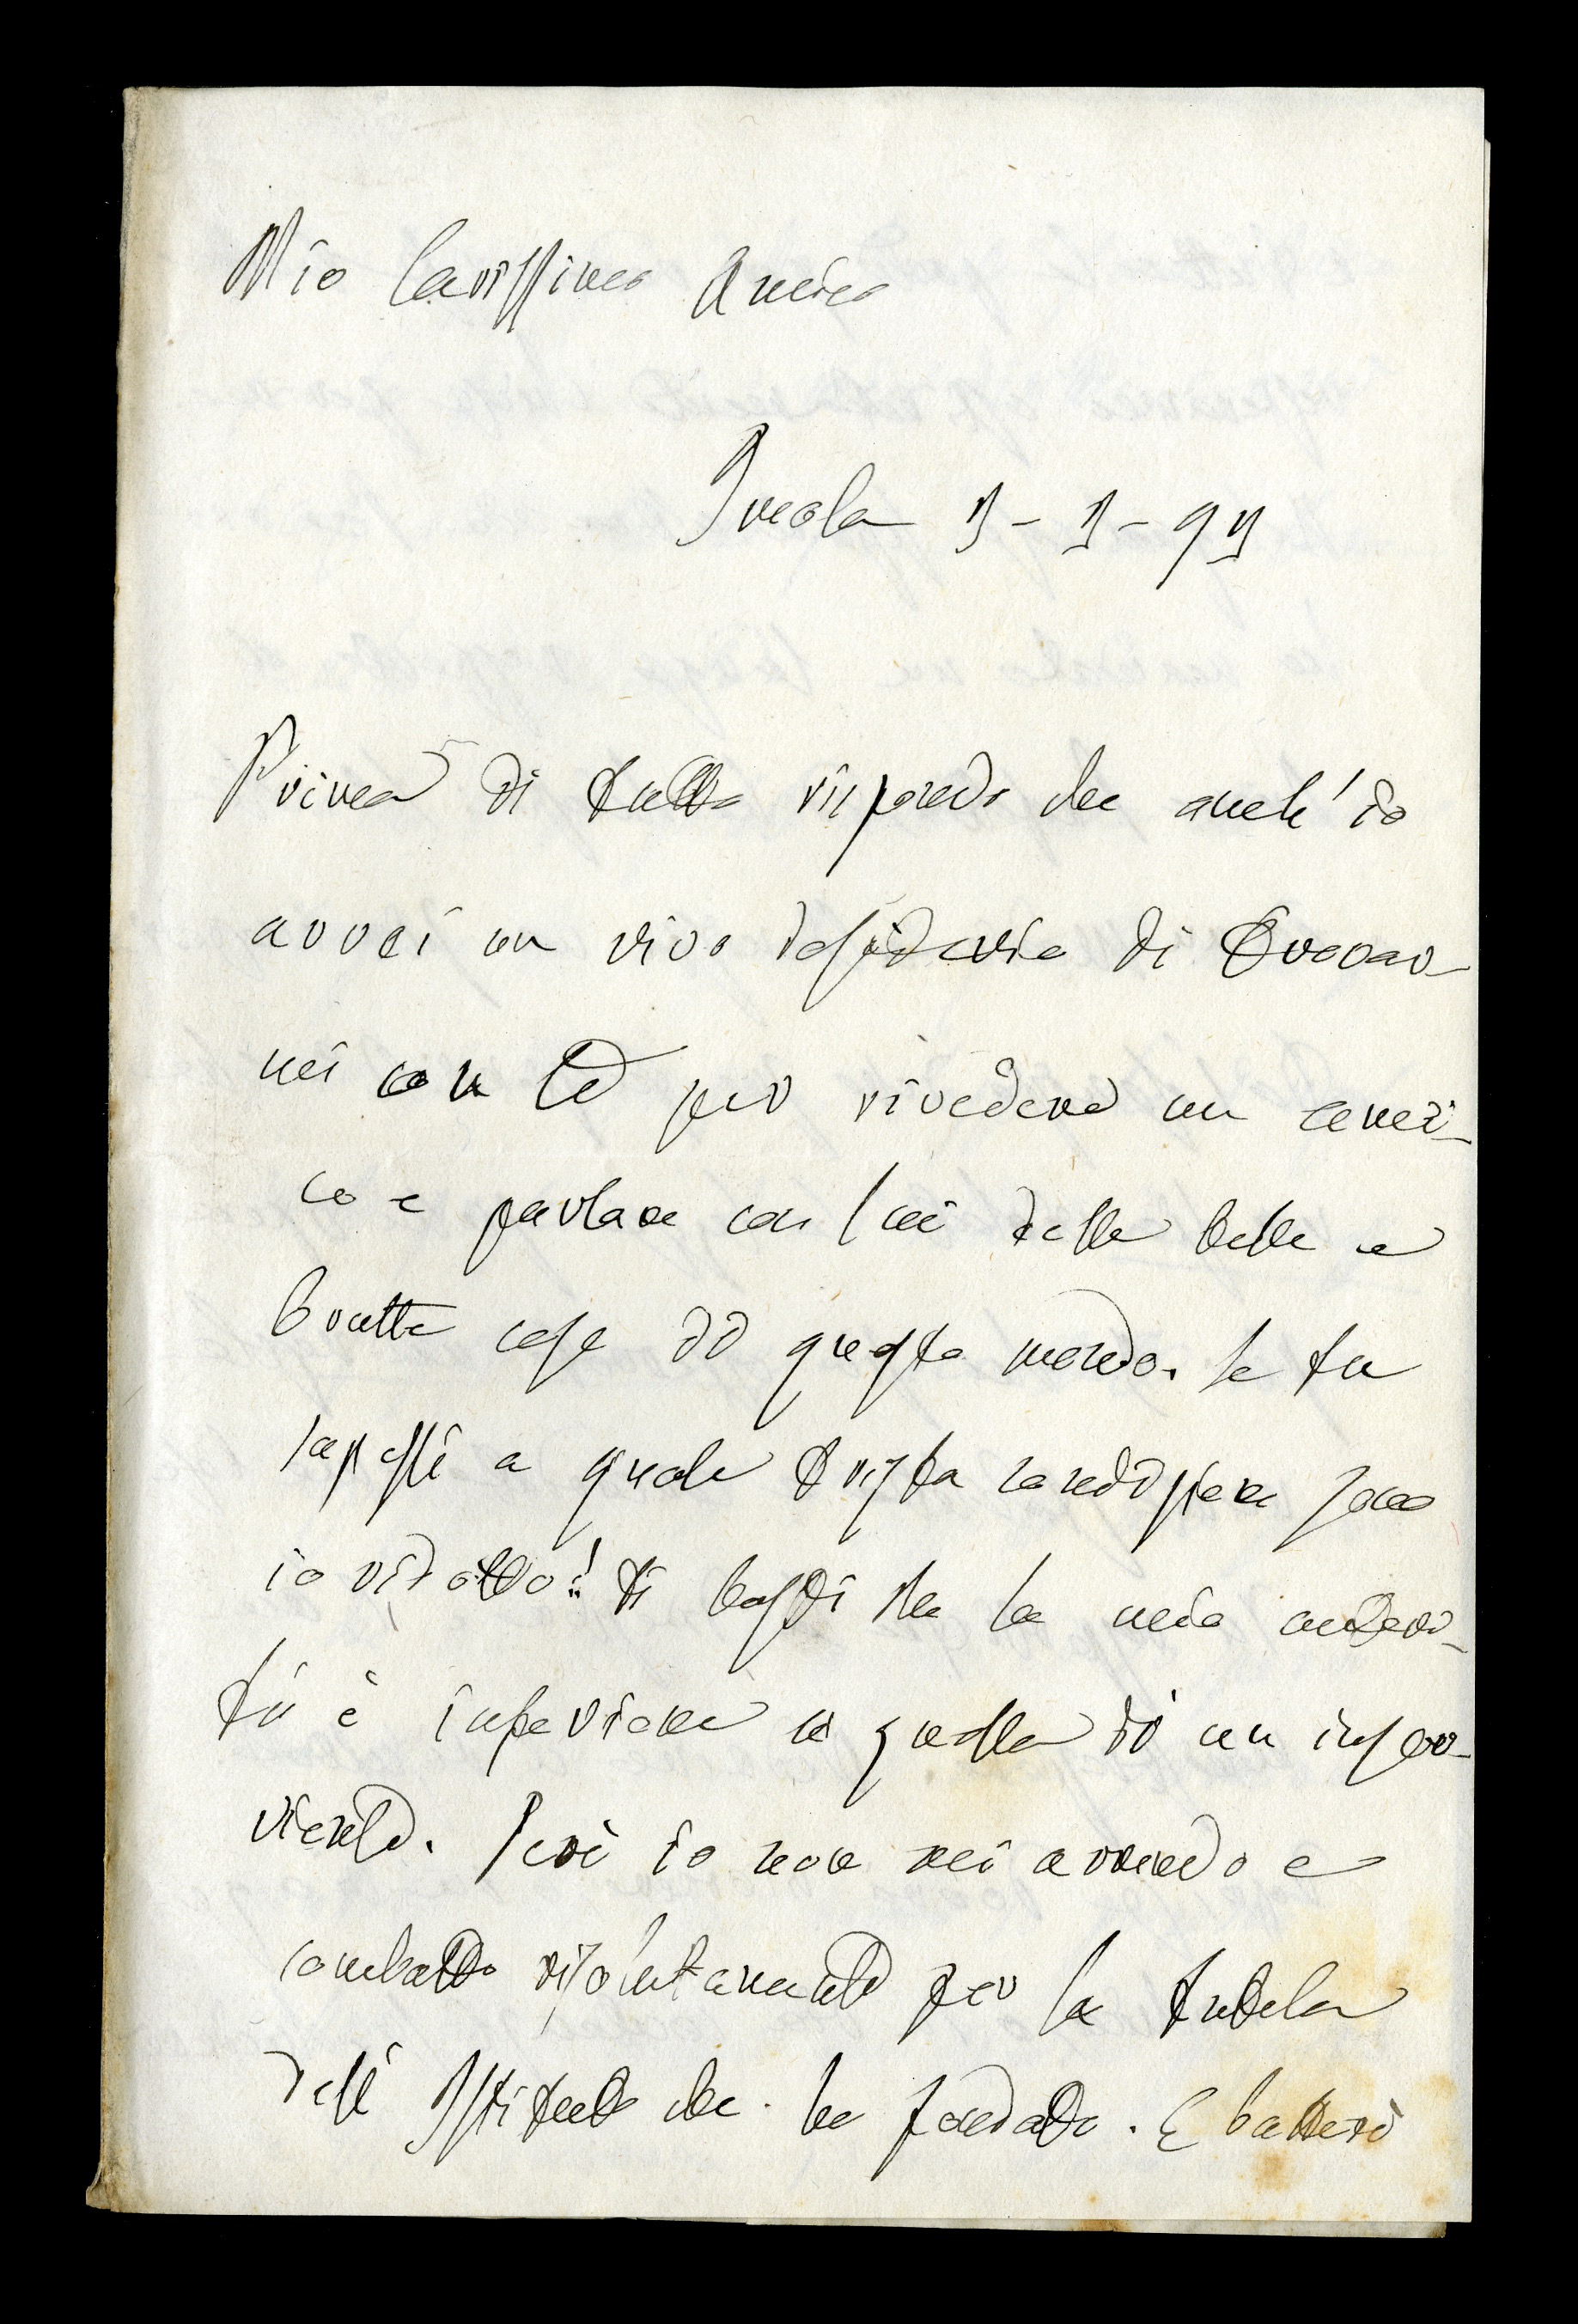 Mio Carissimo Amico
Imola 3-3-99
Prima di tutto rispondo che anch'io
avrei un vivo desiderio di trovar-
mi con te per rivedere un ami-
co e parlare con lui delle belle e
brutte cose di questo mondo. Se tu
sapessi a quale trista condizione sono
io ridotto! Ti basti che la mia autori-
tà è inferiore a quella di un inser-
viente. Però io non mi arrendo e
combatto risolutamente per la tutela
dell'Istituto che ho fondato. E batterò